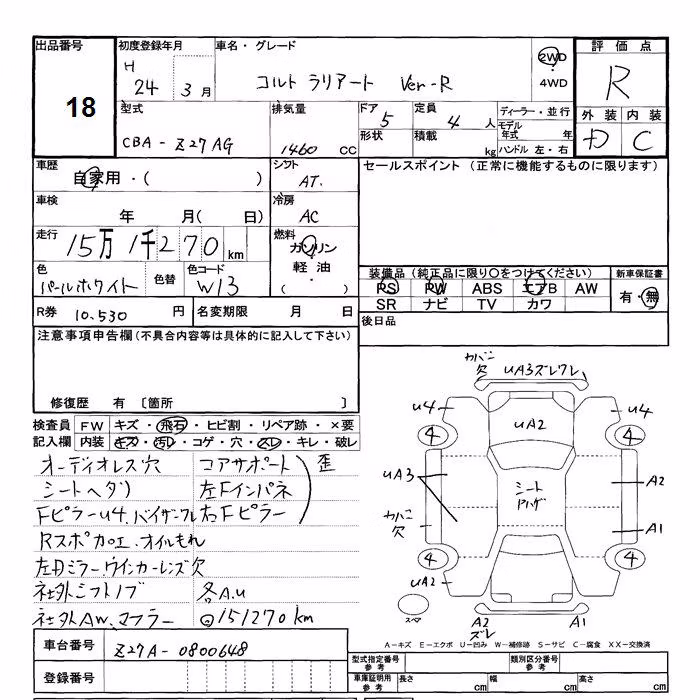 出品番号
18
初度登録年月
H
24 3月
車名・グレード
コルト ラリアート Ver-R
2WD
・
4WD
評価点
R
型式
CBA-Z27AG
排気量
1460 CC
ドア
5
形状
定員
4 人
積載
kg
ディーラー・並行
モデル年式 年
ハンドル 左・右
外装 内装
D C
車歴
自家用・( )
シフト
AT.
セールスポイント (正常に機能するものに限ります)
車検
年 月( 日)
冷房
AC
走行
15万1千270km
燃料
ガソリン
・
軽油
・
( )
色
パールホワイト
色替
色コード
W13
装備品 (純正品に限り○をつけてください)
PS PW ABS エアB AW
SR ナビ TV カワ
新車保証書
有・無
R券 10.530 円
名変期限 月 日
後日品
注意事項申告欄 (不具合内容等は具体的に記入して下さい)
修復歴 有 〔箇所 〕
検査員
記入欄
FW キズ・飛石・ヒビ割・リペア跡・×要
内装 キズ・汚レ・コゲ・穴・スレ・キレ・破レ
オーディオレス穴
シートヘタリ
Fピラーu4.バイザーワレ
Rスポカロエ.オイルもれ
左Dミラー.ウインカーレンズ欠
社外シフトノブ
社外AW.マフラー
コアサポート
左Fインパネ
右Fピラー
歪
各A.u
◎151270km
カバー欠
uA3ズレワレ
u4
u4
4
4
uA2
uA3
シート
ハゲ
A2
カバー欠
A1
4
4
uA2
スペア
A2
ズレ
A1
A-キズ E-エクボ U-凹み W-補修跡 S-サビ C-腐食 XX-交換済
車台番号 Z27A-0800648
登録番号
型式指定番号
参考
類別区分番号
参考
車庫証明用
参考
長さ cm
幅 cm
高さ cm